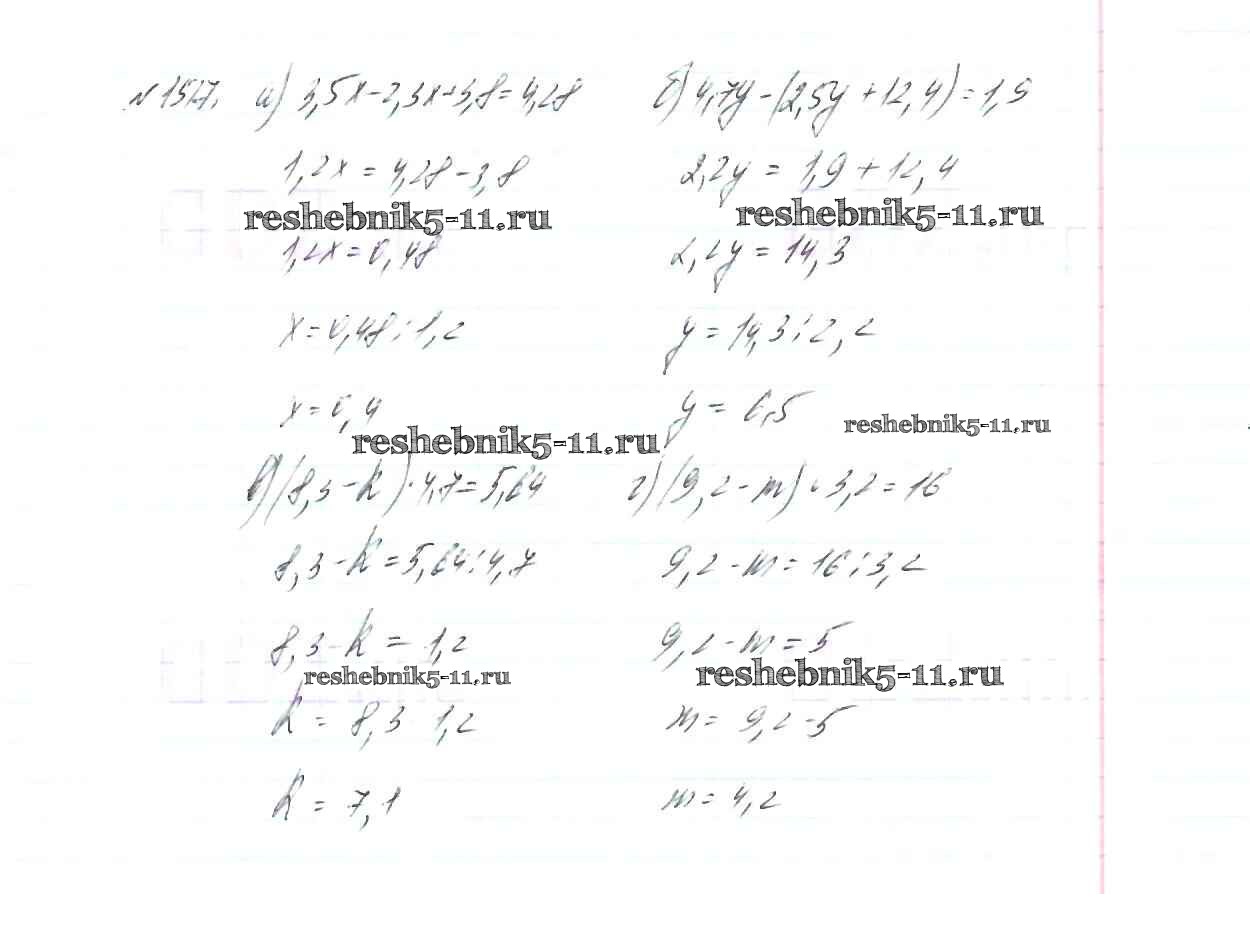 №1517. а) 3,5x-2,3x+3,8=4,28
1,2x=4,28-3,8
reshebnik5-11.ru
1,2x=0,48
x=0,48:1,2
x=0,4
б) 4,7y-(2,5y+12,4)=1,9
2,2y=1,9+12,4
reshebnik5-11.ru
2,2y=14,3
y=14,3:2,2
y=6,5
reshebnik5-11.ru
reshebnik5-11.ru
в) (8,3-k)·4,7=5,64
8,3-k=5,64:4,7
8,3-k=1,2
reshebnik5-11.ru
k=8,3-1,2
k=7,1
г) (9,2-m)·3,2=16
9,2-m=16:3,2
9,2-m=5
reshebnik5-11.ru
m=9,2-5
m=4,2